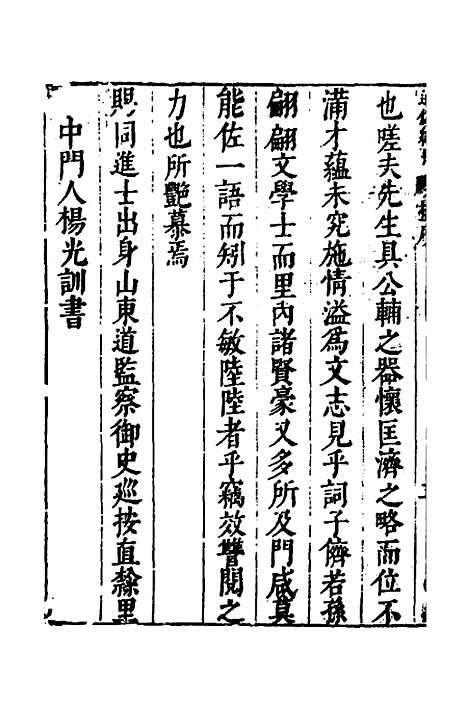 也嗟夫先生具公輔之器懷匡濟之略而位不
滿才蘊未究施情溢爲文志見乎詞子儕若孫
翩翩文學士而里內諸賢豪又多所及門咸莫
能佐一語而矧于不敏陸陸者乎竊效讐閱之
力也所艷慕焉
賜同進士出身山東道監察御史巡按直隸里
中門人楊光訓書